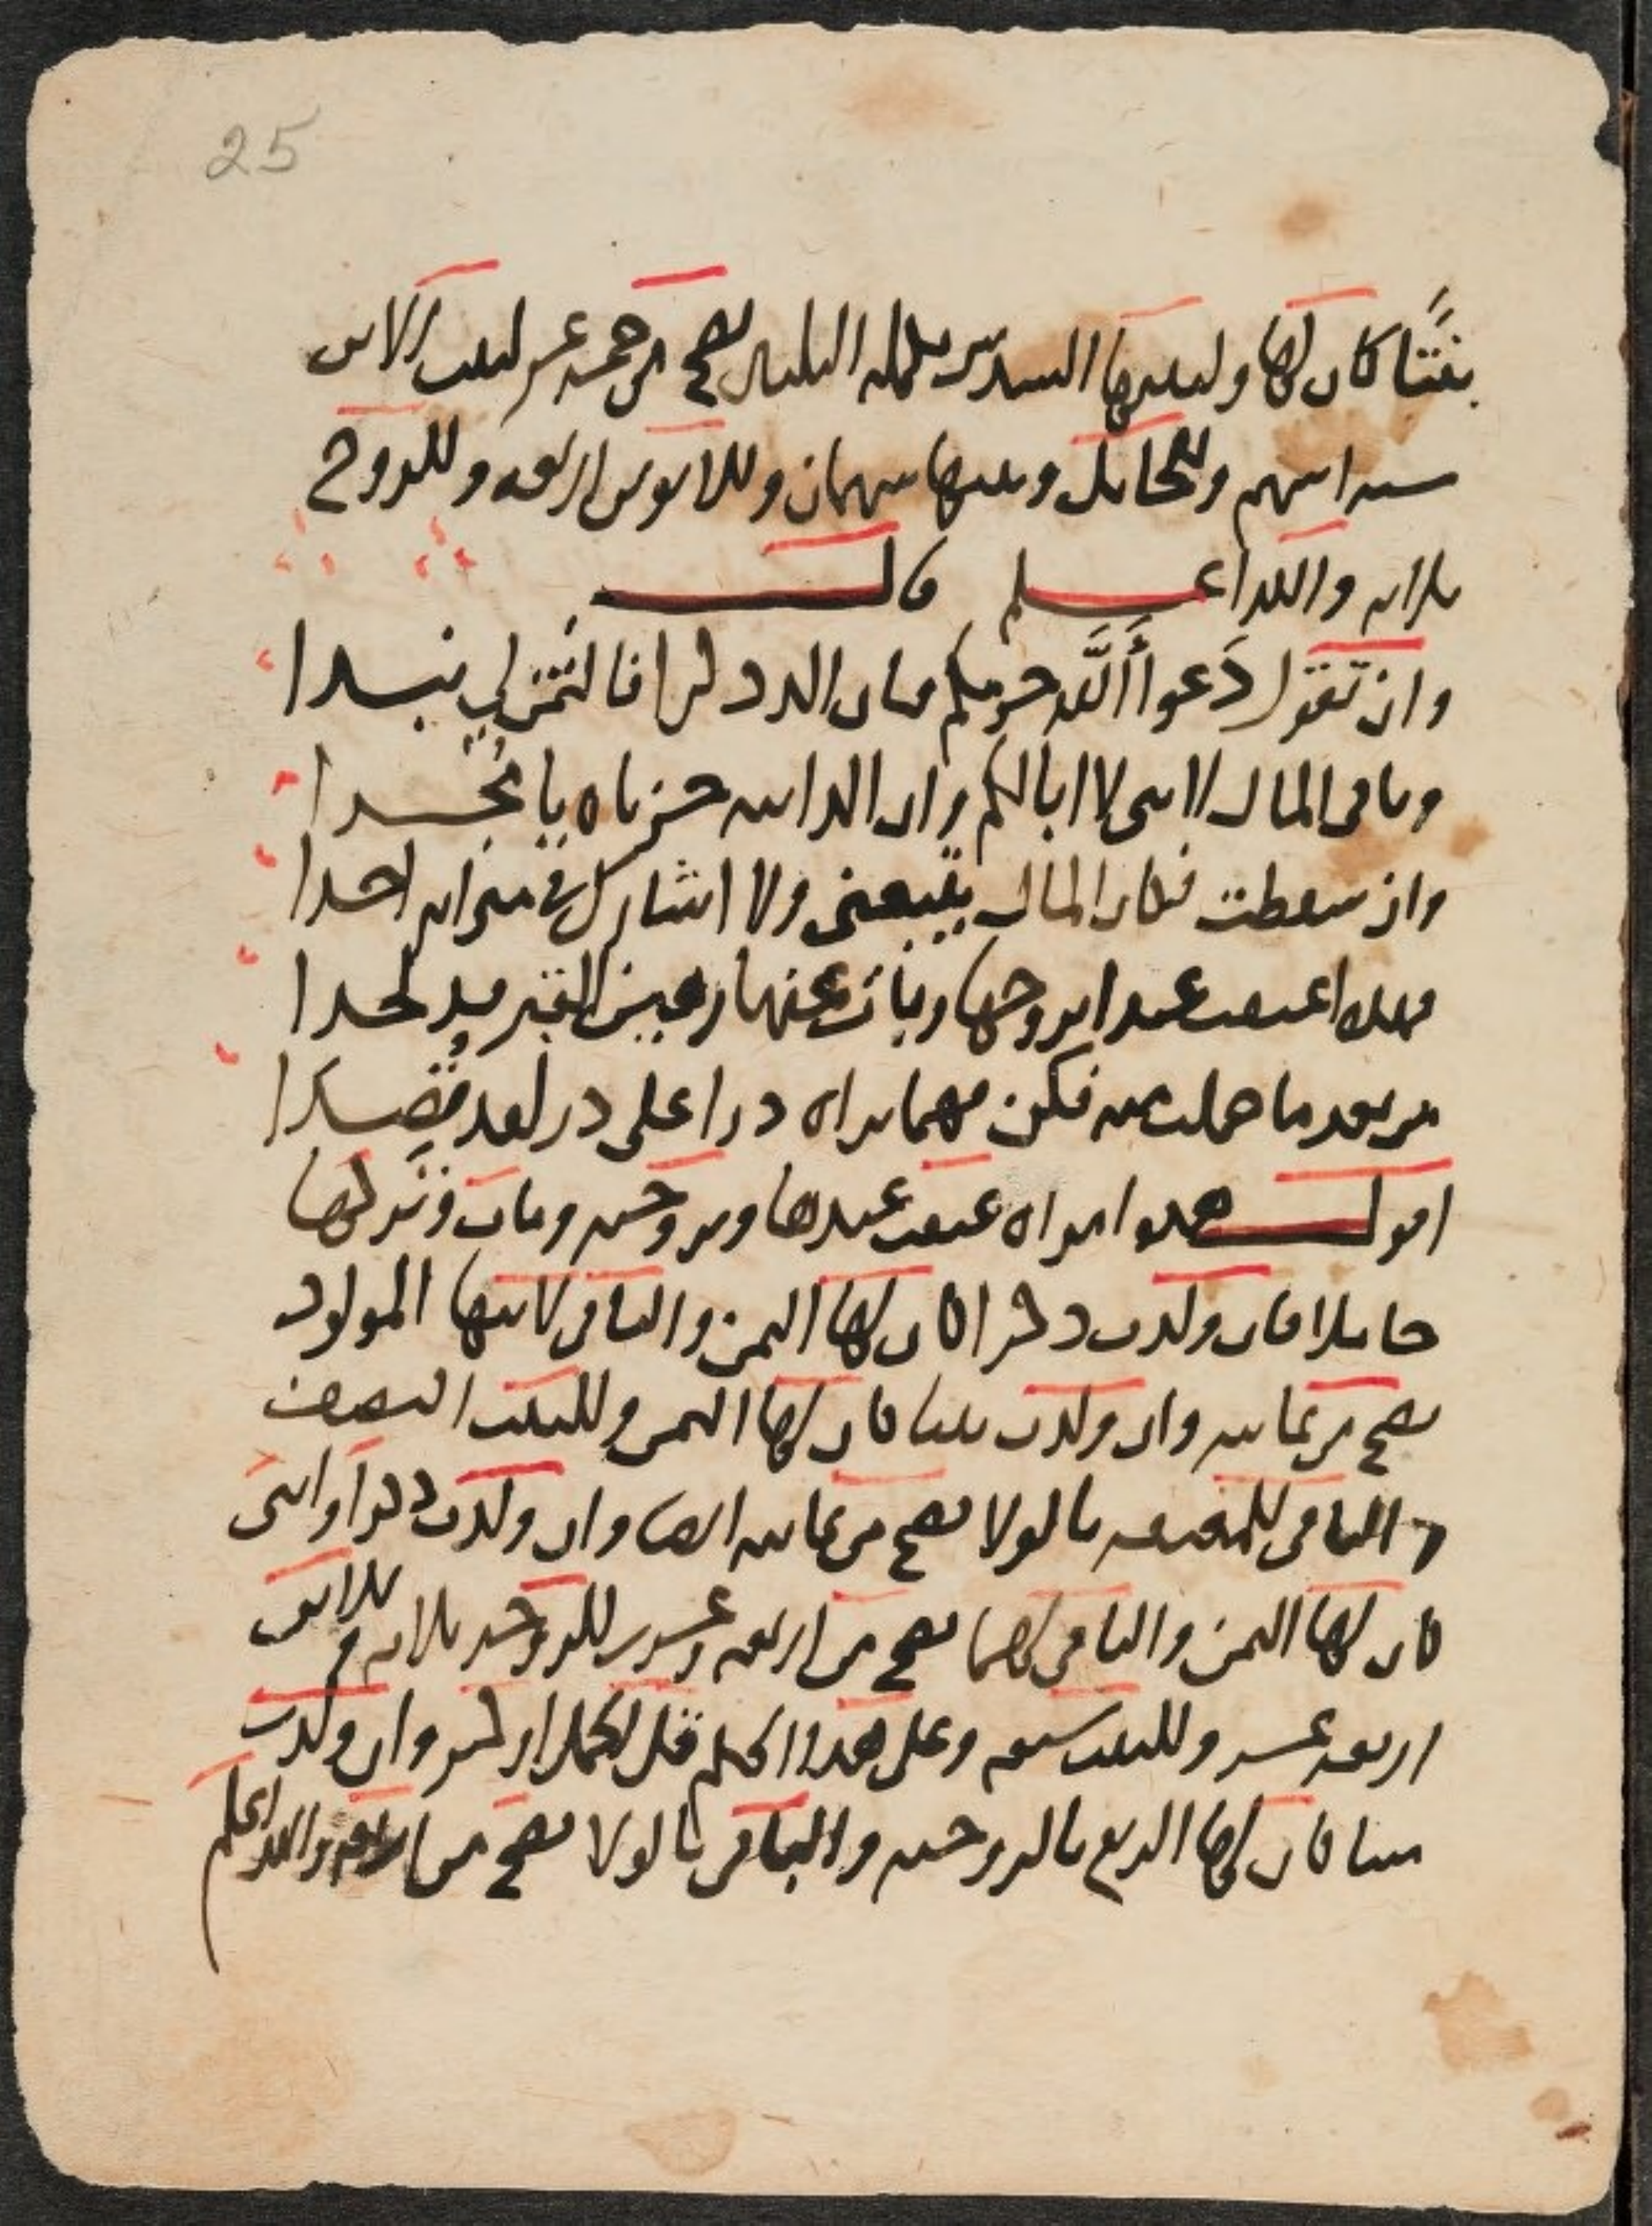 25
بنتًا كان لها ولبنتها السدس تكملة الثلثين تصح من خمسة عشر لبنت الابن
ستة اسهم وللحامل وبنتها سهمان وللابوين اربعة وللزوج
ثلاثة والله اعلم قالـــــت
وان تقول دعوا الله حربكم فان الد ذكرا فالثمن لي نبدا
وباقي المال لابني لا ابا لكم وان الد ابنه حزناه يا
وان سقطت فكل المال يتبعني ولا اشارك في ميراثه احدا
فهذه اعتقت عبدا تزوجها وبات عنها رهين القبر ملحدا
من بعد ما حملت منه فكن فهما تراه درا على در لقد نضدا
اقولـــــ هذه امراة عتقت عبدها وتزوجته ومات وتركها
حاملا فان ولدت ذكرا كان لها الثمن والباقي لابنها المولود
تصح من ثمانية وان ولدت بنتا كان لها الثمن وللبنت النصف
والباقي للمعتقة بالولا تصح من ثمانية ايضا وان ولدت ذكرا وانثى
كان لها الثمن والباقي لهما تصح من اربعة وعشرين للزوجة ثلاثة وللابن
اربعة عشر وللبنت سبعة وعلى هذا الحكم قل لحمل اكثر وان ولدت
ميتا كان لها الربع بالزوجية والباقي بالولا تصح من اربعة والله اعلم